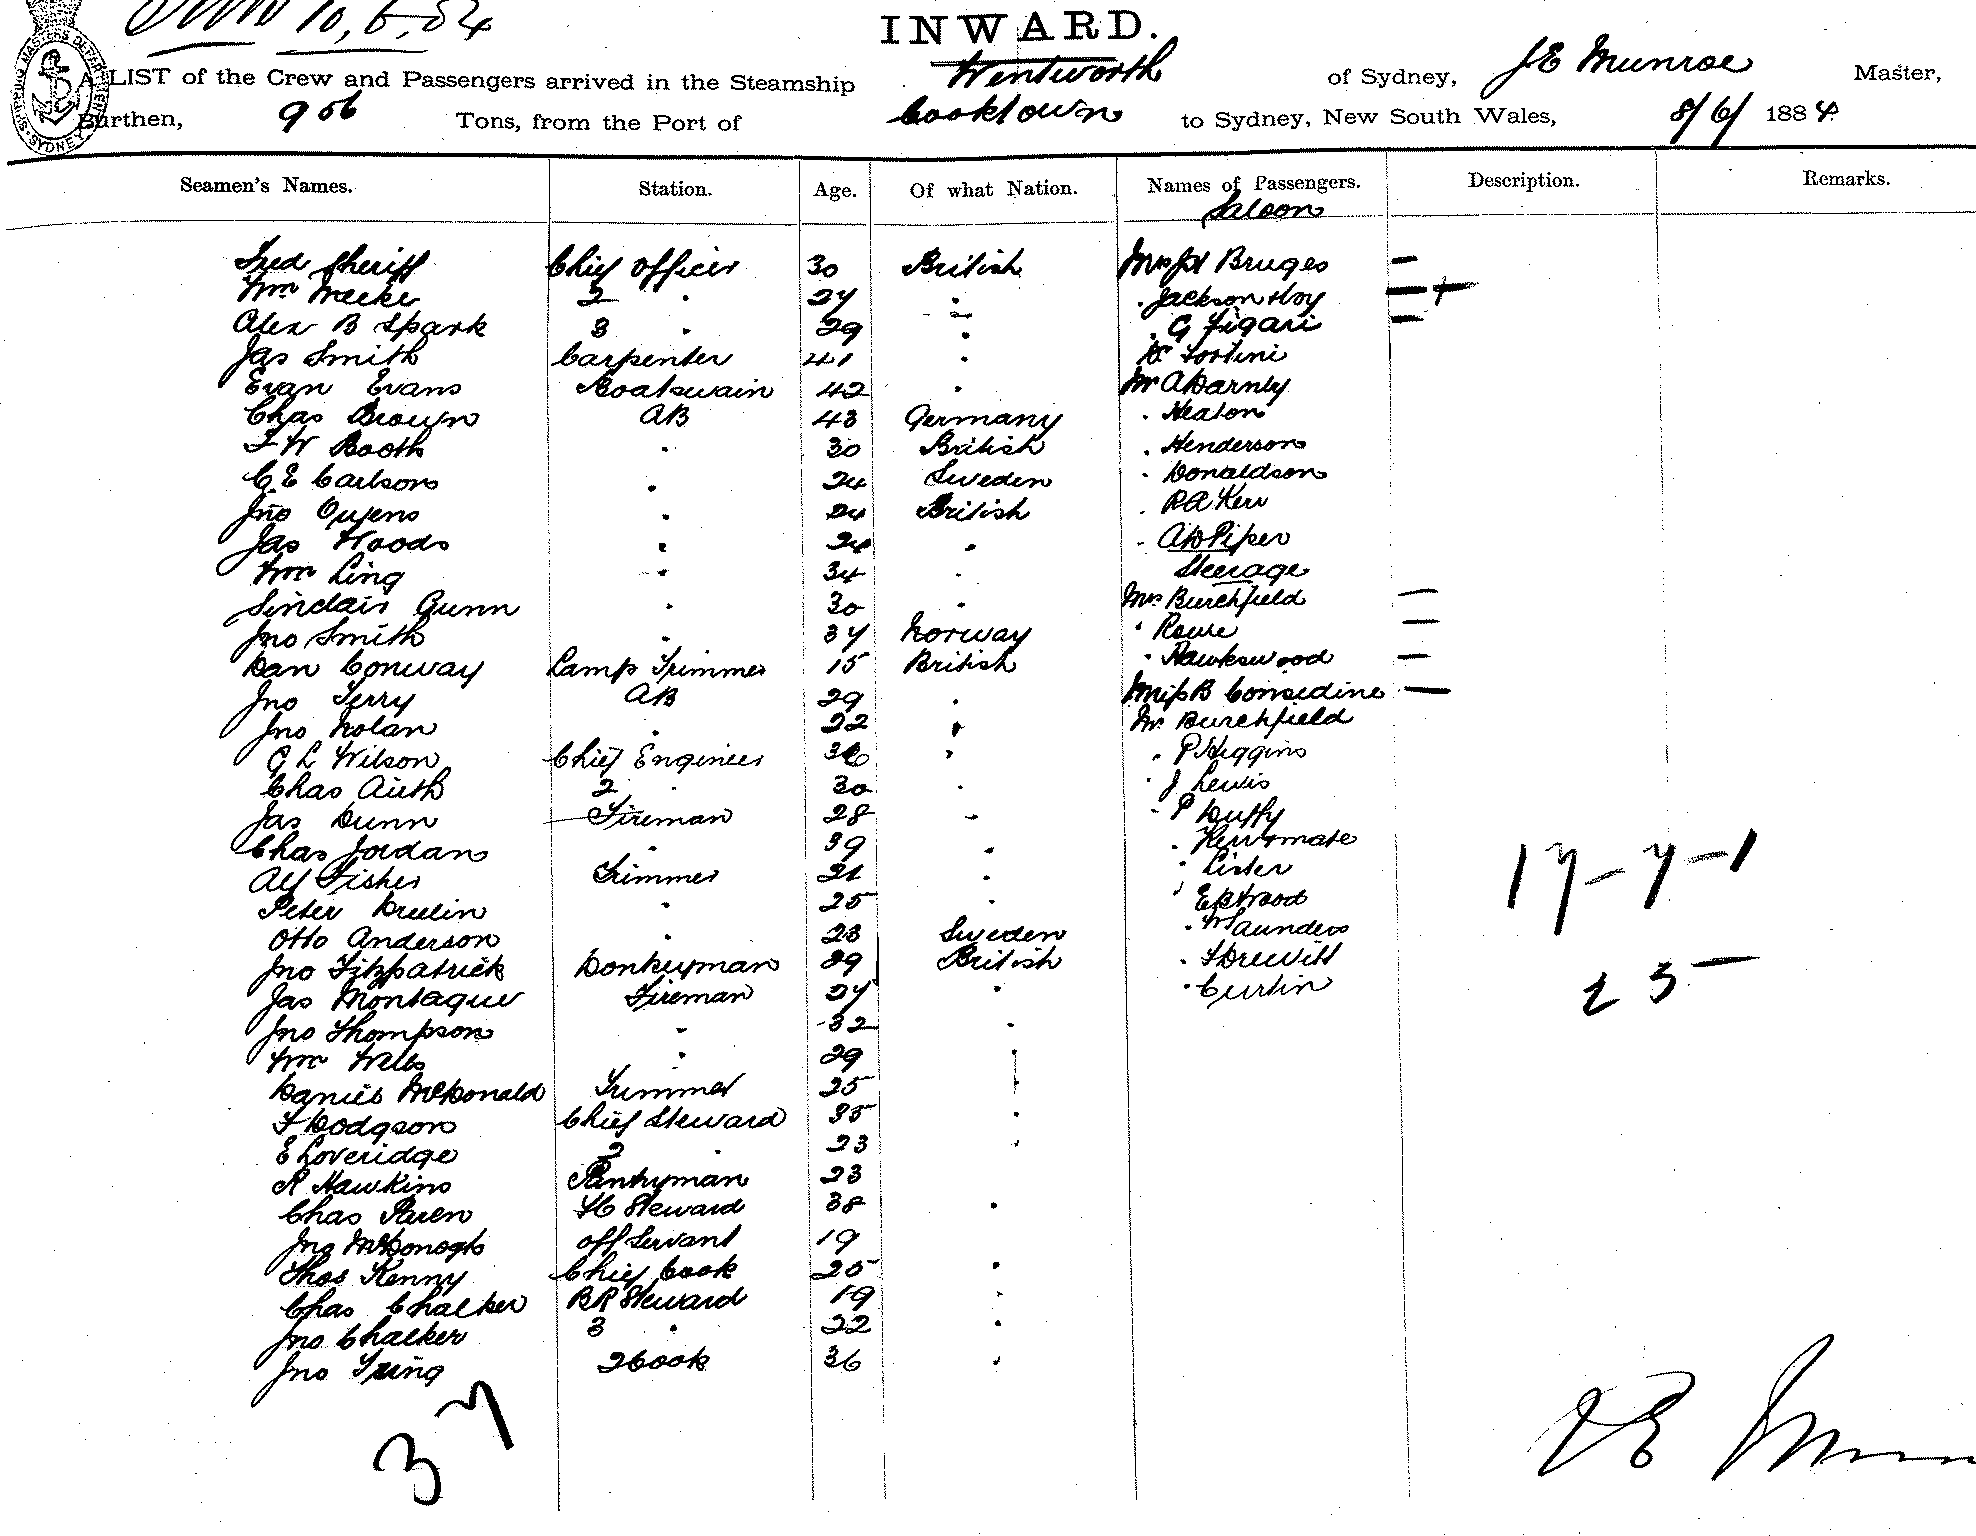 10, 6, 84
INWARD.
A LIST of the Crew and Passengers arrived in the Steamship Wentworth of Sydney, J E Munroe Master,
Burthen, 956 Tons, from the Port of Cooktown to Sydney, New South Wales, 8/6/ 1884
Seamen's Names. Station. Age. Of what Nation. Names of Passengers. Description. Remarks.
Saloon
Fred Sheriff Chief Officer 30 British Mrs Bruges —
Wm Meeke 2 " 27 " " Jackson —
Alex B Spark 3 " 29 " " G Figari —
Jas Smith Carpenter 41 " Fortini
Evan Evans Boatswain 42 " Mr A Darnly
Chas Brown AB 43 Germany " Heaton
F W Booth " 30 British " Henderson
C.E Carlson " 24 Sweden " Donaldson
Jno Owens " 24 British " R A Kerr
Jas Woods " 24 " " A D Piper
Wm Ling " 34 " Steerage
Sinclair Gunn " 30 " Mrs Burchfield —
Jno Smith " 37 Norway " Rowe —
Dan Conway Lamp Trimmer 15 British " Hawkswood —
Jno Terry AB 29 " Miss B Considine —
Jno Nolan " 22 " Mr Burchfield
G L Wilson Chief Engineer 36 " " P Higgins
Chas Auth 2 " 30 " " J Lewis
Jas Dunn Fireman 28 " " P Duffy
Chas Jordan " 39 " "
Alf Fisher Trimmer 21 " " Lister 17-7-1
Peter " 25 " " Wood
Otto Anderson " 23 Sweden " W Saunders
Jno Fitzpatrick Donkeyman 29 British " Drewitt
Jas Montague Fireman 27 " " Curtin 25 —
Jno Thompson " 32 "
Wm Wells " 29 "
Daniel McDonald Trimmer 25 "
F Dodgson Chief Steward 35 "
E Loveridge 2 " 23 "
R Hawkins Pantryman 23
Chas Steward 38 "
Jno McDonogh Off Servant 19
Thos Kenny Chief Cook 25 "
Chas Chalker B R Steward 19 "
Jno Chalker 3 " 22 "
Jno 2 Cook 36 "
37
J E